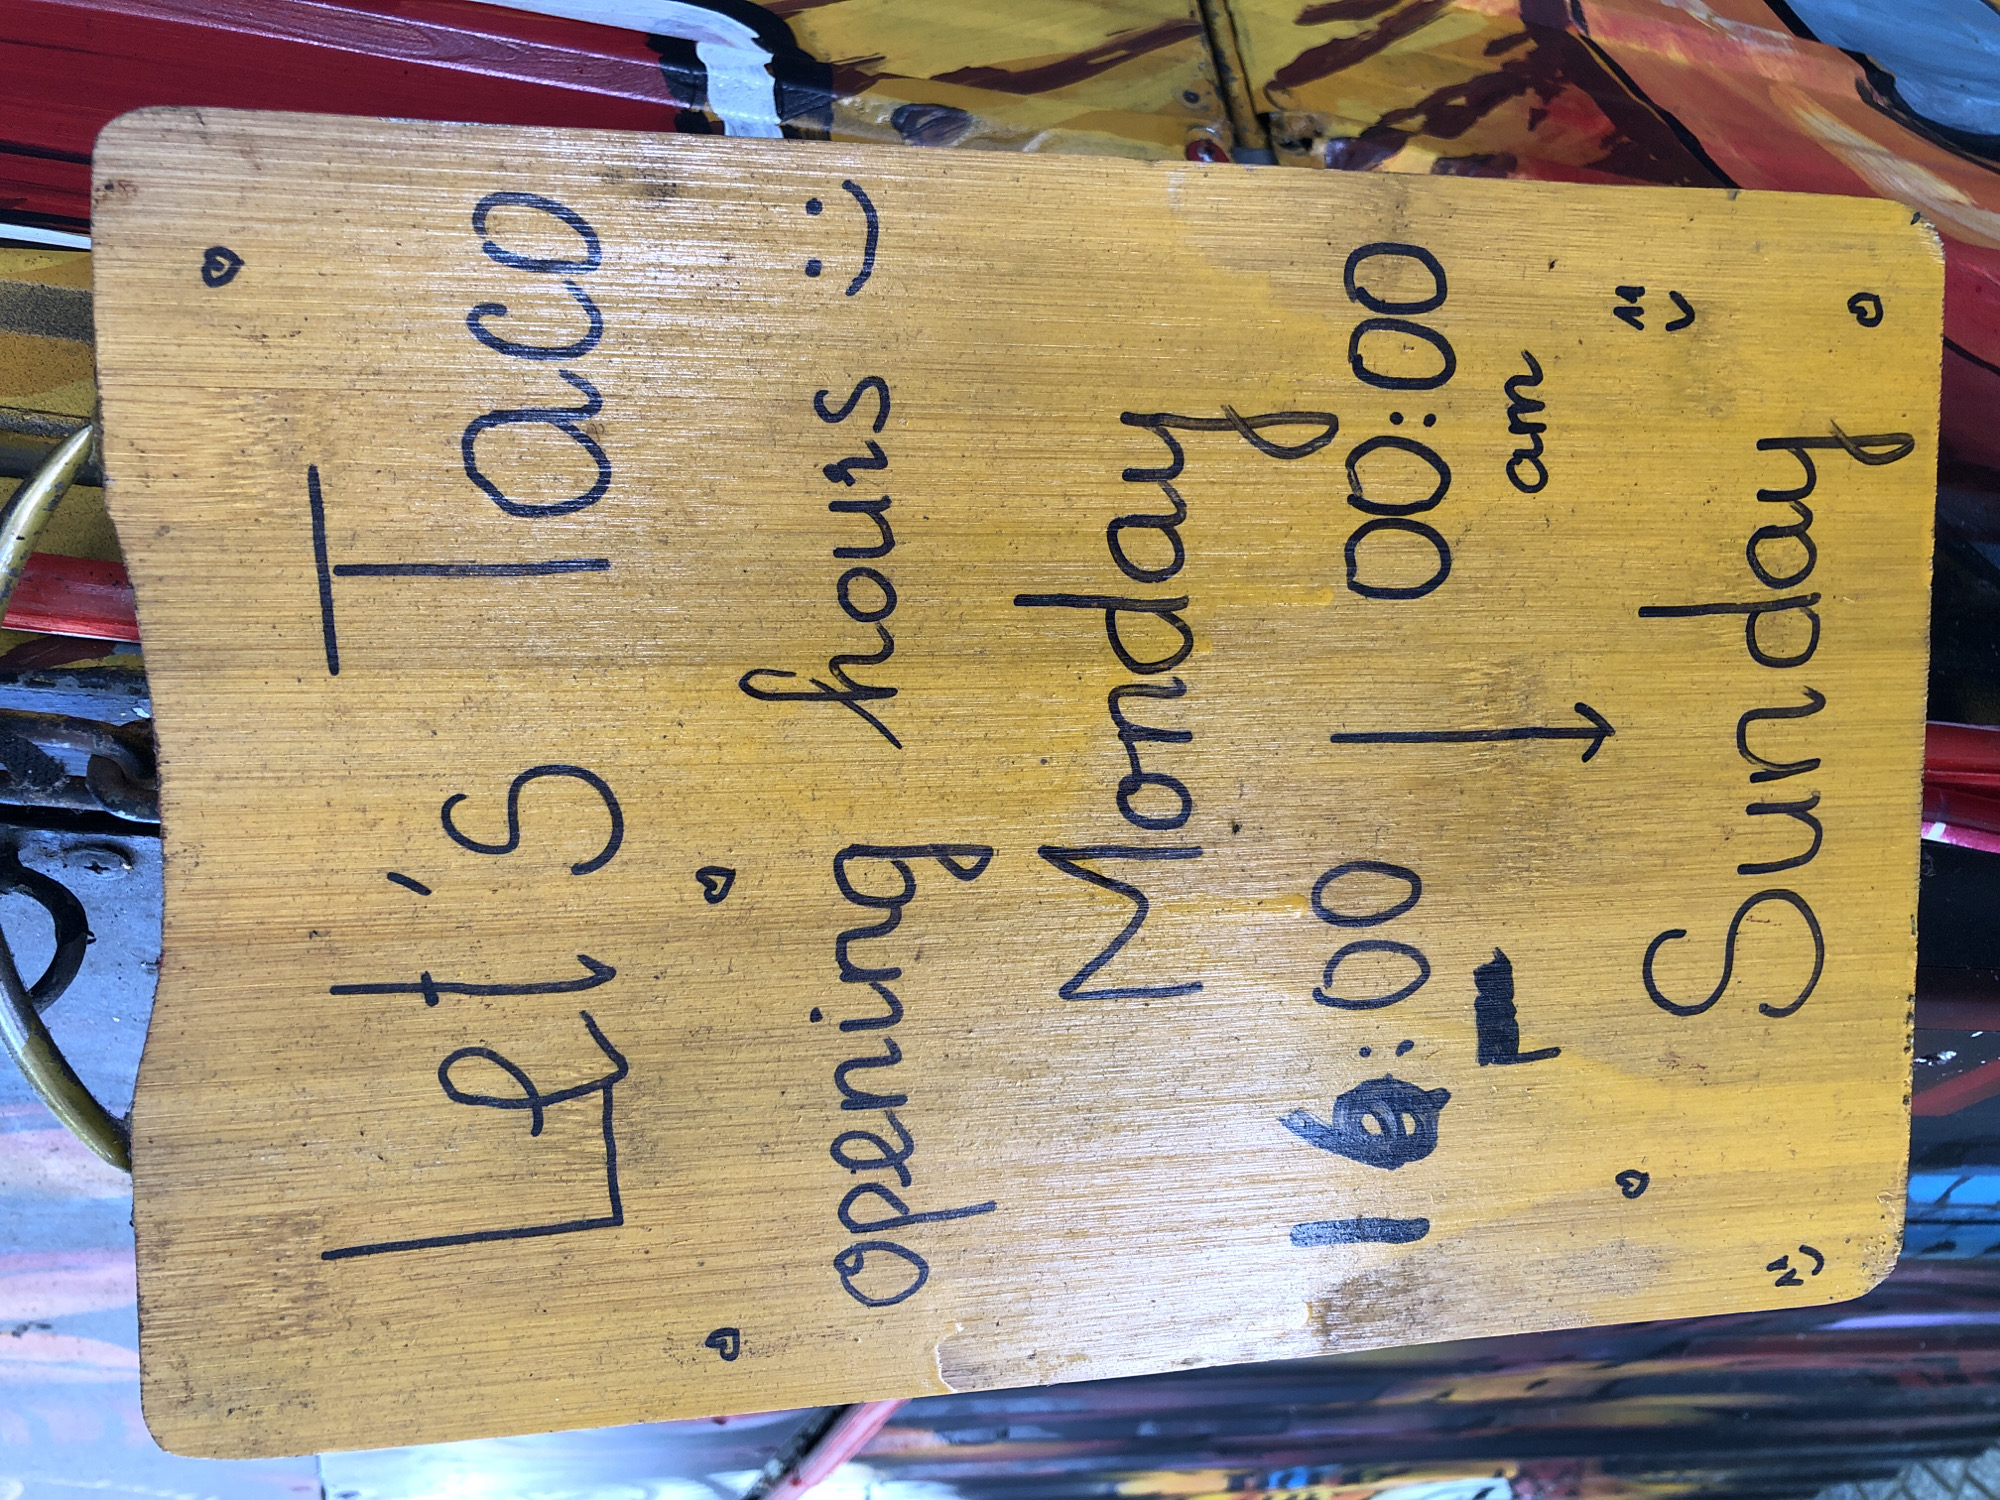 Let's Taco
opening hours :)
Monday
16:00 ↓ 00:00
am
Sunday